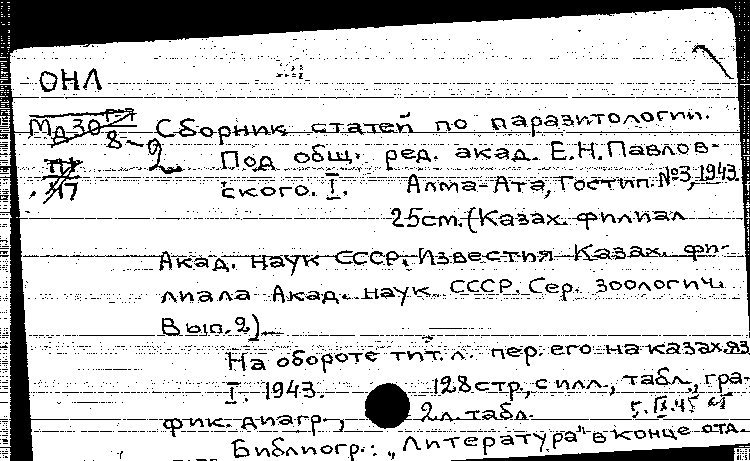 ОНЛ
Мд 30
8-2 Сборник статей по паразитологии.
Под общ. ред. акад. Е.Н.Павлов-
ского. I. Алма-Ата, Гостип. №3, 1943.
25см. (Казах. филиал
Акад. наук СССР. Известия Казах. фи-
лиала Акад. наук СССР. Сер. зоологич.
Вып. 2).
На обороте тит. л. пер. его на казах. яз.
I. 1943. 128 стр., с илл., табл., гра-
фик. диагр., 2 л. табл.
Библиогр.: „Литература" в конце отд.